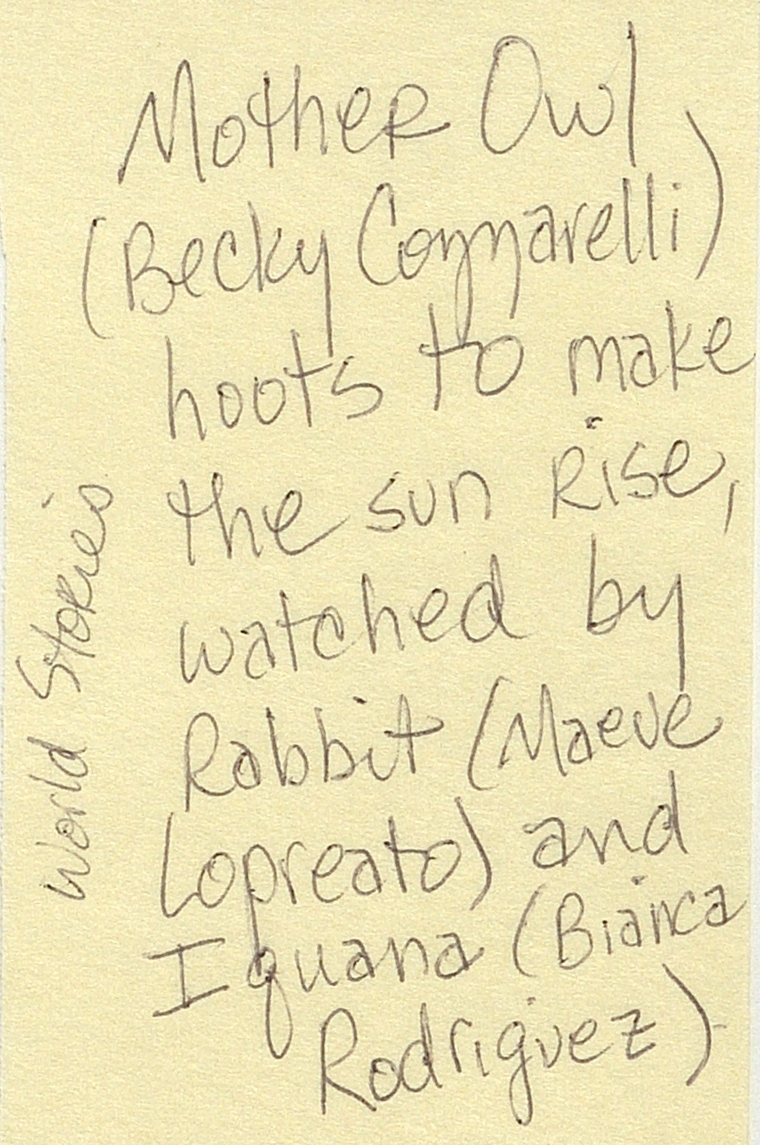 Mother Owl
(Becky Connarelli)
hoots to make
the sun rise,
watched by
Rabbit (Maeve
Lopreato) and
Iguana (Bianca
Rodriguez)
World Stories